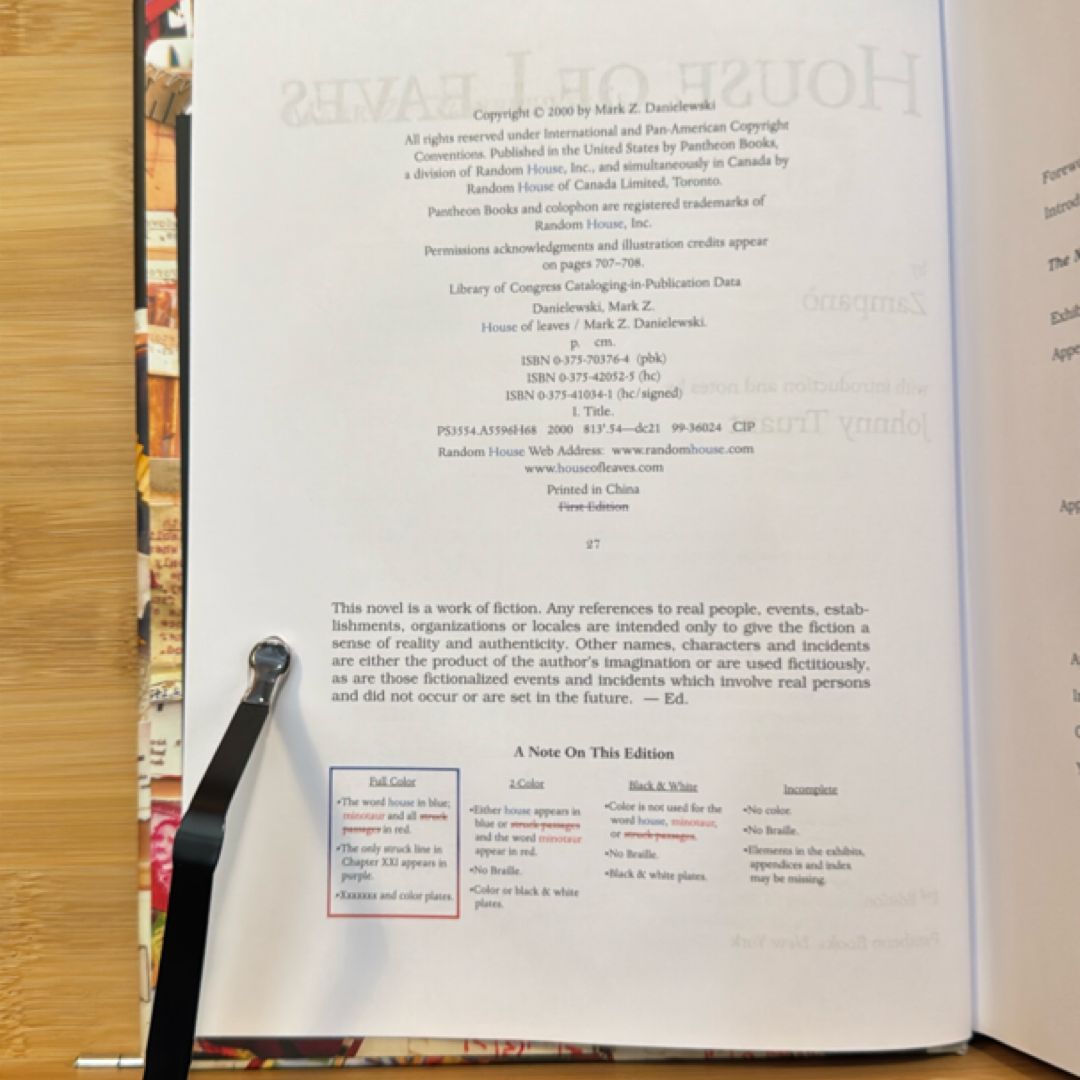 HOUSE OF LEAVES
Copyright © 2000 by Mark Z. Danielewski
All rights reserved under International and Pan-American Copyright
Conventions. Published in the United States by Pantheon Books,
a division of Random House, Inc., and simultaneously in Canada by
Random House of Canada Limited, Toronto.
Pantheon Books and colophon are registered trademarks of
Random House, Inc.
Permissions acknowledgments and illustration credits appear
on pages 707–708.
Library of Congress Cataloging-in-Publication Data
Danielewski, Mark Z.
House of leaves / Mark Z. Danielewski.
p. cm.
ISBN 0-375-70376-4 (pbk)
ISBN 0-375-42052-5 (hc)
ISBN 0-375-41034-1 (hc/signed)
I. Title.
PS3554.A5596H68 2000 813'.54—dc21 99-36024 CIP
Random House Web Address: www.randomhouse.com
www.houseofleaves.com
Printed in China
First Edition
27
by
Zampanò
with introduction and notes by
Johnny Truant
This novel is a work of fiction. Any references to real people, events, estab-
lishments, organizations or locales are intended only to give the fiction a
sense of reality and authenticity. Other names, characters and incidents
are either the product of the author's imagination or are used fictitiously,
as are those fictionalized events and incidents which involve real persons
and did not occur or are set in the future. — Ed.
A Note On This Edition
Full Color
•The word house in blue;
minotaur and all struck
passages in red.
•The only struck line in
Chapter XXI appears in
purple.
•Xxxxxxx and color plates.
2-Color
•Either house appears in
blue or struck passages
and the word minotaur
appear in red.
•No Braille.
•Color or black & white
plates.
Black & White
•Color is not used for the
word house, minotaur,
or struck passages.
•No Braille.
•Black & white plates.
Incomplete
•No color.
•No Braille.
•Elements in the exhibits,
appendices and index
may be missing.
Pantheon Books New York
The